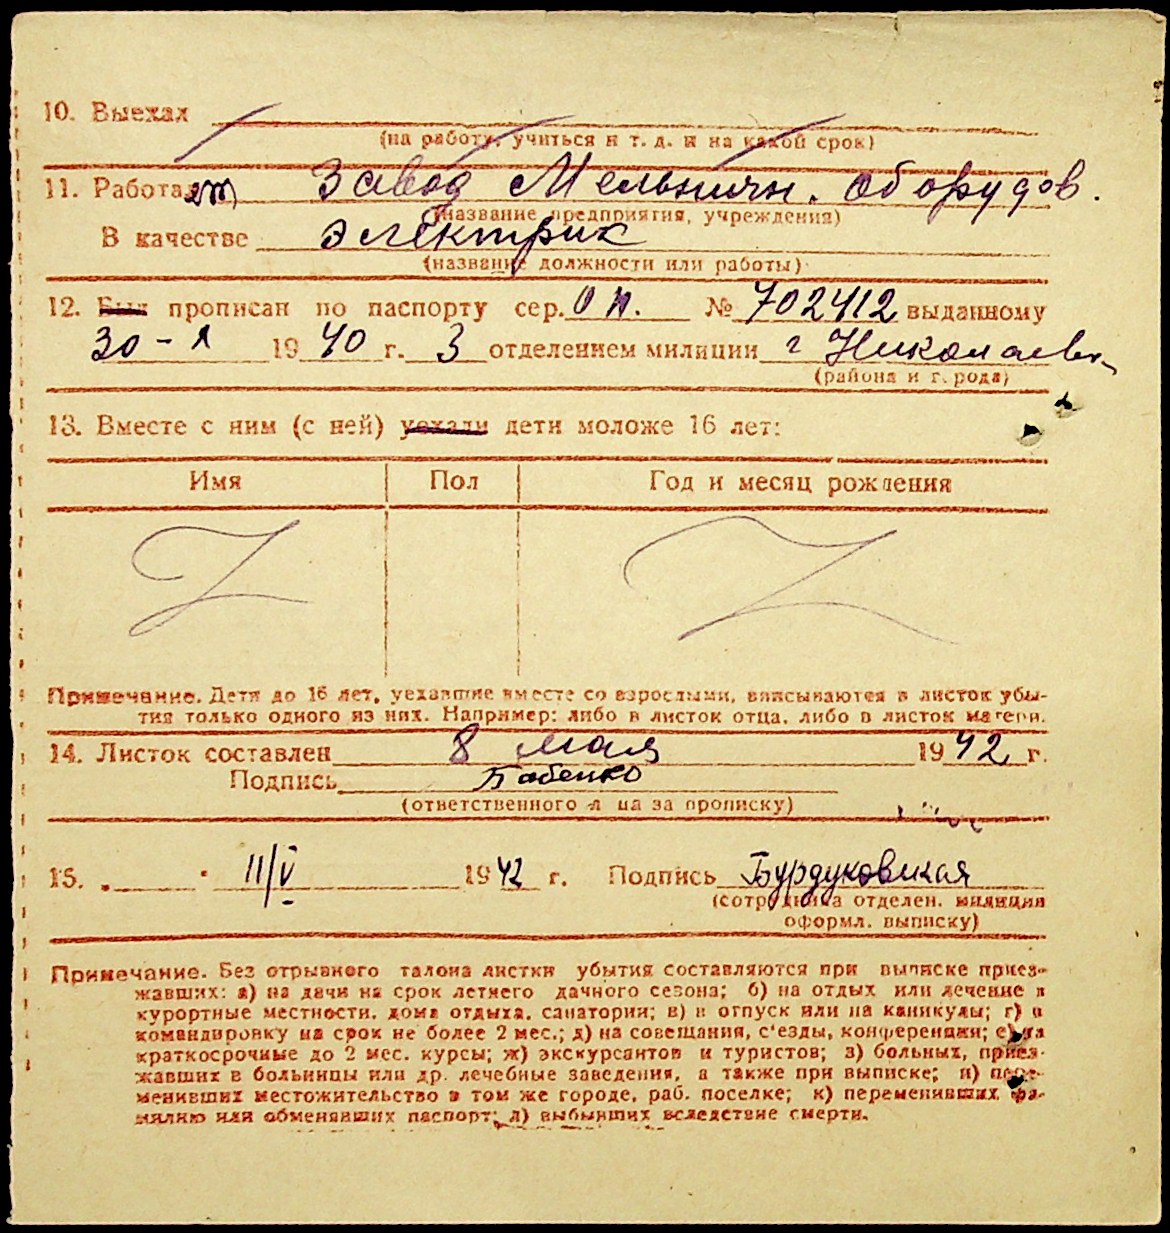 10. Выехал
(на работу, учиться и т. д. и на какой срок)
11. Работает Завод Мельничн. оборудов.
(название предприятия, учреждения)
В качестве электрик
(название должности или работы)
12. Был прописан по паспорту сер. ОП. № 702412 выданному
30 - X 1940 г. 3 отделением милиции г Николаев
(района и города)
13. Вместе с ним (с ней) уехали дети моложе 16 лет:
Имя Пол Год и месяц рождения
Z Z
Примечание. Дети до 16 лет, уехавшие вместе со взрослыми, вписываются в листок убы-
тия только одного из них. Например: либо в листок отца, либо в листок матери.
14. Листок составлен 8 мая 1942 г.
Подпись Бабенко
(ответственного лица за прописку)
15. 11/V 1942 г. Подпись Бурдуковская
(сотрудника отделен. милиции
оформл. выписку)
Примечание. Без отрывного талона листки убытия составляются при выписке приез-
жавших: а) на дачи на срок летнего дачного сезона; б) на отдых или лечение в
курортные местности, дома отдыха, санатории; в) в отпуск или на каникулы; г) в
командировку на срок не более 2 мес.; д) на совещания, с'езды, конференции; е) на
краткосрочные до 2 мес. курсы; ж) экскурсантов и туристов; з) больных, приез-
жавших в больницы или др. лечебные заведения, а также при выписке; и) пере-
менивших местожительство в том же городе, раб. поселке; к) переменивших фа-
милию или обменявших паспорт; л) выбывших вследствие смерти.